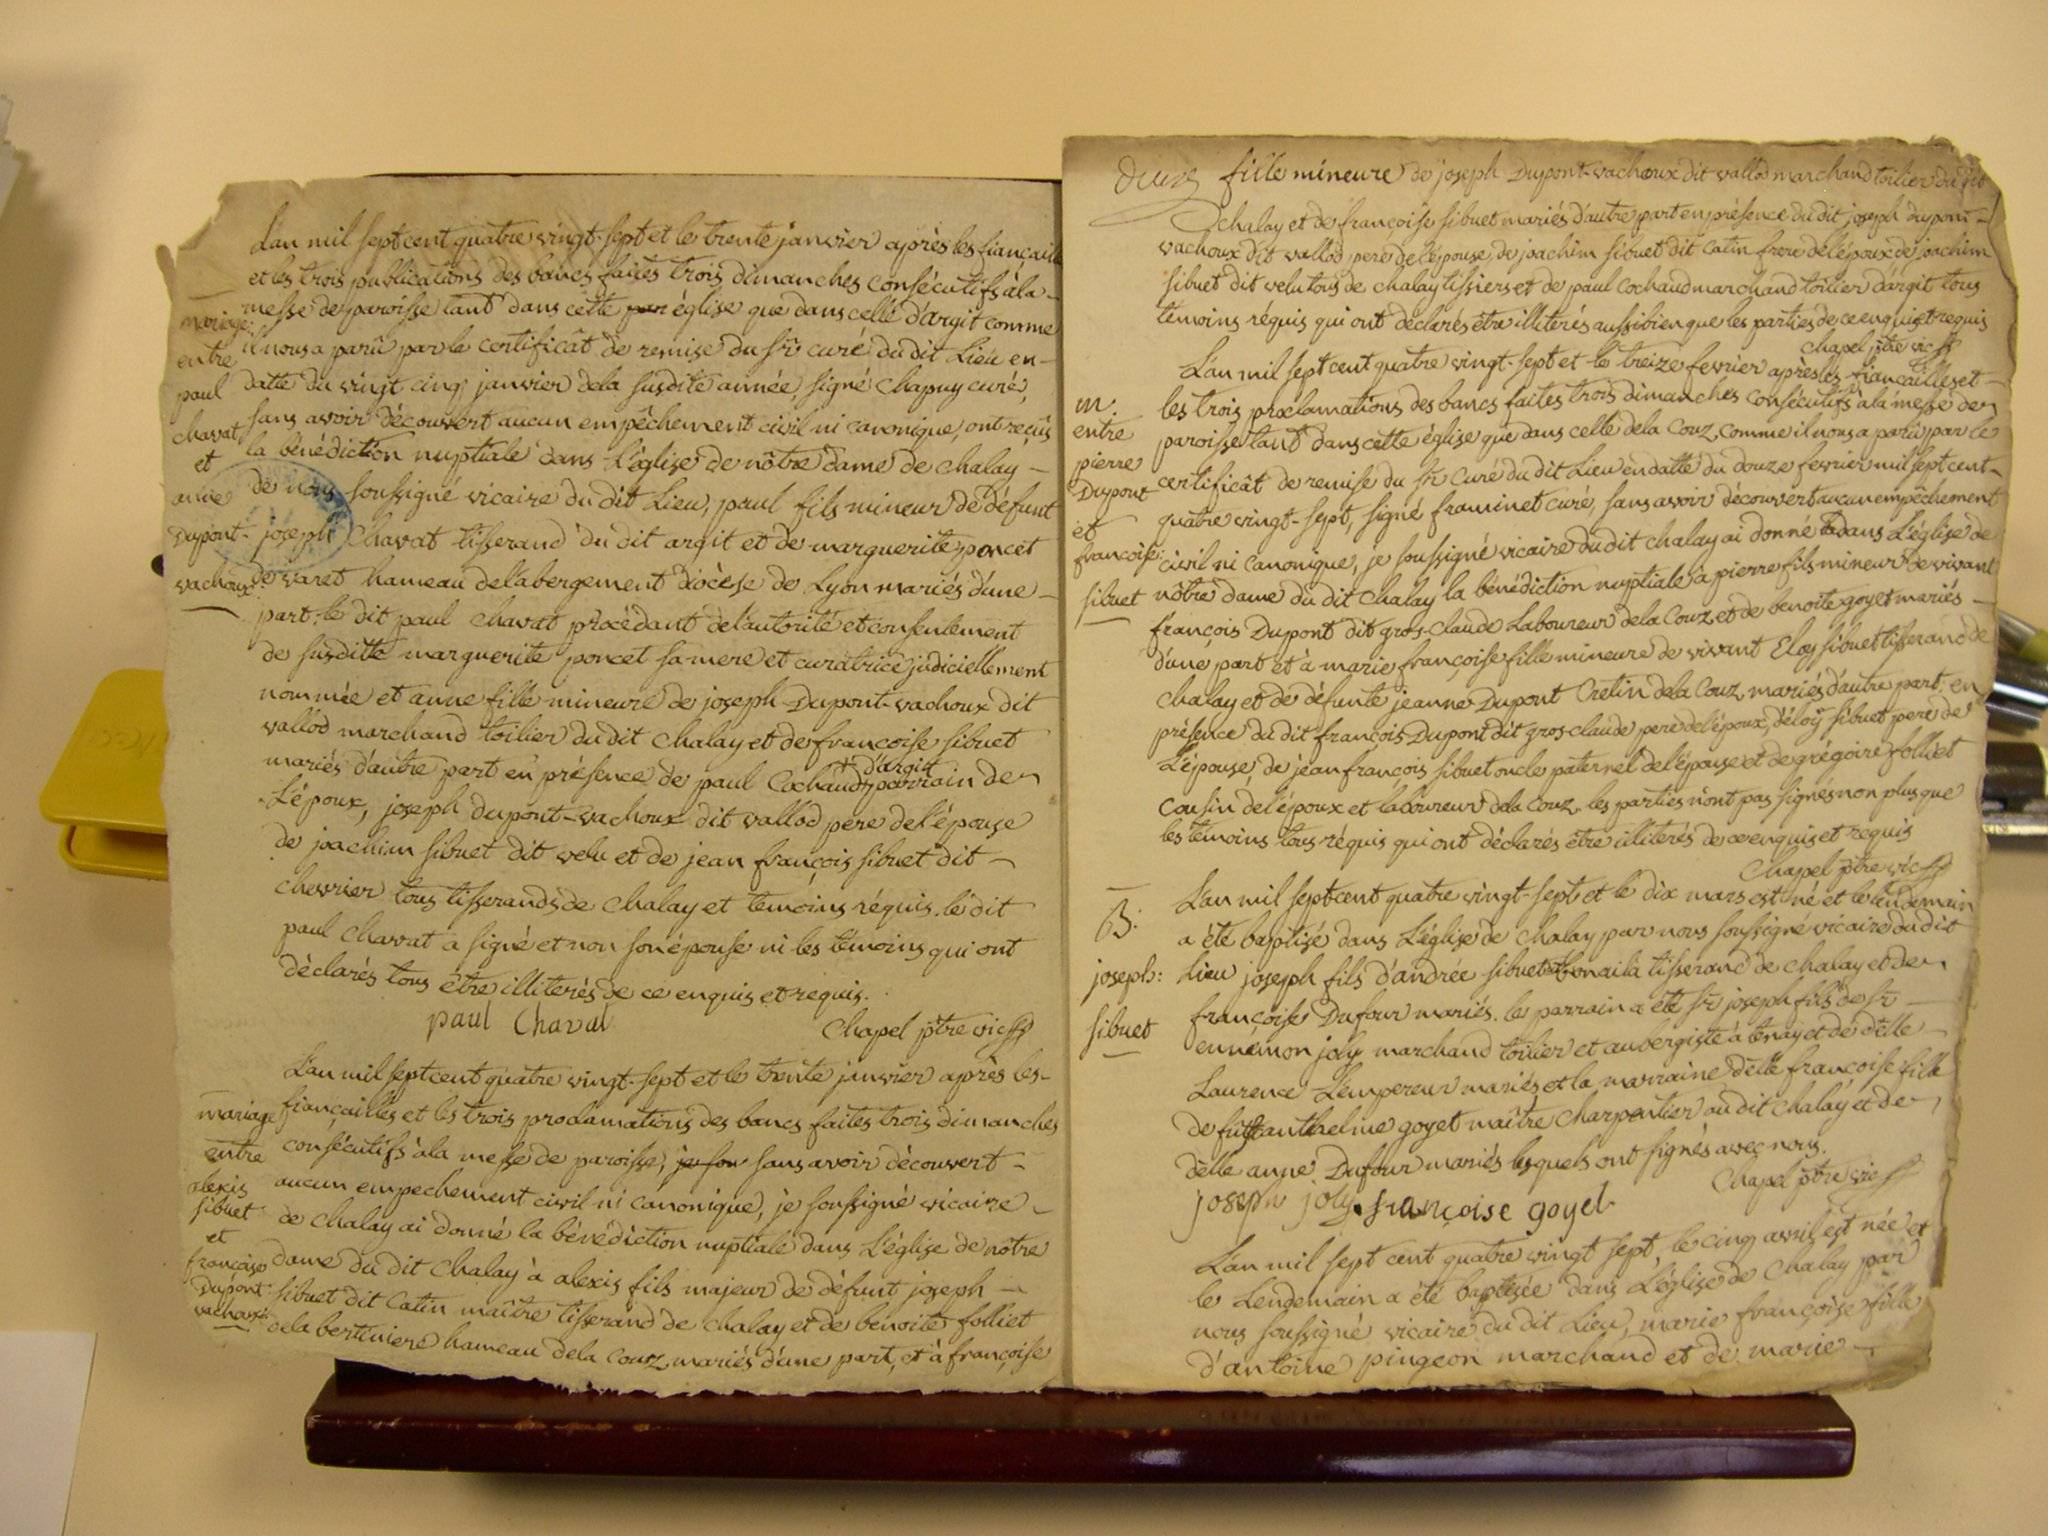 L'an mil sept cent quatre vingt-sept et le trente janvier après les fiançaill
et les trois publications des bancs faites trois dimanches consécutifs à la
messe de paroisse tant dans cette par église que dans celle d'argit comme
il nous a parû par le certificât de remise du sr curé du dit Lieu en
datte du vingt cinq janvier dela susdite année, signé Chapuy curé,
sans avoir découvert aucun empêchement civil ni canonique, ont reçus
la bénédiction nuptiale dans L'église de nôtre dame de chalay
de nous soussigné vicaire du dit Lieu, paul fils mineur de défunt
joseph Chavat tisserand du dit argit et de marguerite poncet
de varet hameau delabergement diocèse de Lyon mariés d'une
part: le dit paul chavat procédant de l'autorité et consentement
de susditte marguerite poncet sa mere et curatrice judiciellement
nommée et anne fille mineure de joseph Dupont-vachoux dit
vallod marchand toilier du dit Chalay et de françoise sibuet
mariés d'autre part en présence de paul Cochaud d'argit parrain de
L'époux, joseph dupont-vachoux dit vallod pere de l'épouse
de joachim sibuet dit velu et de jean françois sibuet dit
chevrier tous tisserands de Chalay et temoins réquis. le dit
paul chavat a signé et non son épouse ni les témoins qui ont
déclarés tous être illiterés de ce enquis et requis.
paul Chavat
Chapel ptre vic
mariage
entre
paul
chavat
et
anne
Dupont-
vachoux
L'an mil sept cent quatre vingt-sept et le trente janvier après les
fiançailles et les trois proclamations des bancs faites trois dimanches
consécutifs à la messe de paroisse, je sou sans avoir découvert
aucun empechement civil ni canonique, je soussigné vicaire
de chalay ai donné la bénédiction nuptiale dans L'église de nôtre
dame du dit Chalay à alexis fils majeur de défunt joseph
sibuet dit Catin maître tisserand de chalay et de benoite folliet
dela bertiniere hameau dela Couz mariés d'une part, et à françoise
mariage
entre
alexis
sibuet
et
françoise
Dupont
vachoux
fille mineure de joseph Dupont-vachoux dit vallod marchand toilier du dit
chalay et de françoise sibuet mariés d'autre part en présence du dit joseph dupont-
vachoux dit vallod pere de l'épouse, de joachim sibuet dit Catin frere de l'époux de joachim
sibuet dit velu tous de chalay tissiers et de paul Cochaud marchand toilier d'argit tous
témoins réquis qui ont déclarés être illiterés aussi bien que les parties de ce enquis et requis
Chapel ptre vic
L'an mil sept cent quatre vingt-sept et le treize fevrier après les fiançailles et
les trois proclamations des bancs faites trois dimanches consécutifs à la messe de
paroisse tant dans cette église que dans celle dela Couz, comme il nous a parû par le
certificât de remise du sr Curé du dit Lieu en datte du douze fevrier mil sept cent
quatre vingt-sept, signé framinet curé, sans avoir découvert aucun empêchement
civil ni canonique, je soussigné vicaire du dit chalay ai donné dans L'église de
nôtre dame du dit Chalay la bénédiction nuptiale à pierre fils mineur de vivant
françois Dupont dit gros-Claude Laboureur dela Couz et de benoite goyet mariés
d'une part et à marie françoise fille mineure de vivant Eloy sibuet tisserand de
chalay et de défunte jeanne Dupont Cretin dela Couz, mariés d'autre part, en
présence du dit françois Dupont dit gros claude pere de l'époux, d'éloÿ sibuet pere de
L'épouse, de jean françois sibuet oncle paternel de l'épouse et de grégoire folliet
cousin de l'époux et laboureur dela Couz, les parties n'ont pas signés non plus que
les témoins tous réquis qui ont déclarés être illiterés de ce enquis et requis
Chapel ptre vic
m.
entre
pierre
Dupont
et
francoise:
sibuet
L'an mil sept cent quatre vingt-sept et le dix mars est né et le lendemain
a été baptisé dans L'église de chalay par nous soussigné vicaire du dit
Lieu joseph fils d'andrée sibuet tisserand de chalay et de
françoise Dufour mariés. le parrain a été sr joseph fils de sr
ennemon joly marchand toilier et aubergiste à tenay et de delle
Laurence Lempereur mariés et la marraine delle françoise fille
de anthelme goyet maître Charpentier au dit chalay et de
delle anne Dufour mariés lesquels ont signés avec nous.
Chapel ptre vic
joseph joly françoise goyet
B:
joseph:
sibuet
L'an mil sept cent quatre vingt sept, le cinq avril est née et
le Lendemain a été baptisée dans L'église de Chalay par
nous soussigné vicaire du dit Lieu, marie françoise fille
d'antoine pingeon marchand et de marie